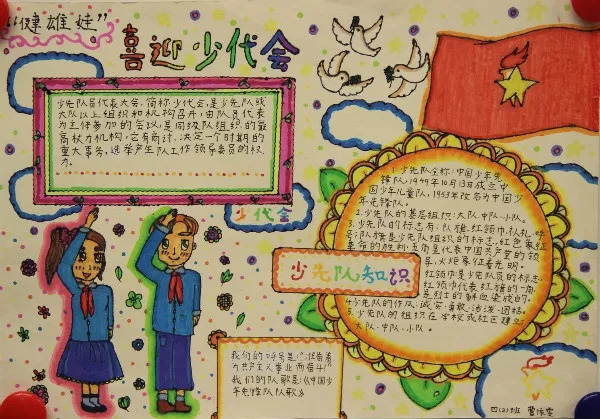 “健雄娃”
喜迎少代会
少先队员代表大会，简称少代会，是少先队战
大队以上组织和机构召开，由队员代表
为主体参加的会议，是同级队组织的最
高权力机构，它有商讨、决定一个时期的
重大事务，选举产生队工作领导委员的权
力。
少代会
少先队知识
1.少先队全称:中国少年先
锋队，1949年10月13日成立中
国少年儿童队，1953年改名为中国少
年先锋队。
2.少先队的基层组织:大队、中队、小队。
3.少先队的标志有:队旗、红领巾、队礼、呼
号。队旗是少先队组织的标志，红色象征
革命的胜利，五角星代表中国共产党的领
导，火炬象征着光明。
红领巾是少先队员的标志，
红领巾代表红旗的一角，
是烈士的鲜血染成的。
4.少先队的作风:诚实、勇敢、活泼、团结。
5.少先队的组织在学校或社区建立
大队、中队、小队。
我们的呼号是:“准备着
为共产主义事业而奋斗!”
我们的队歌是:《中国
少年先锋队队歌》
四(2)班